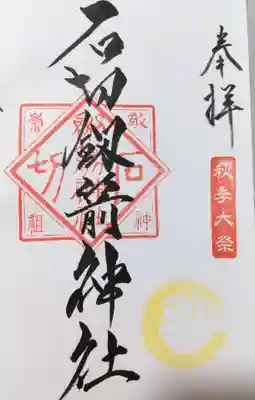 奉拝
秋季大祭
石切劔箭神社
敬神
崇祖
石切